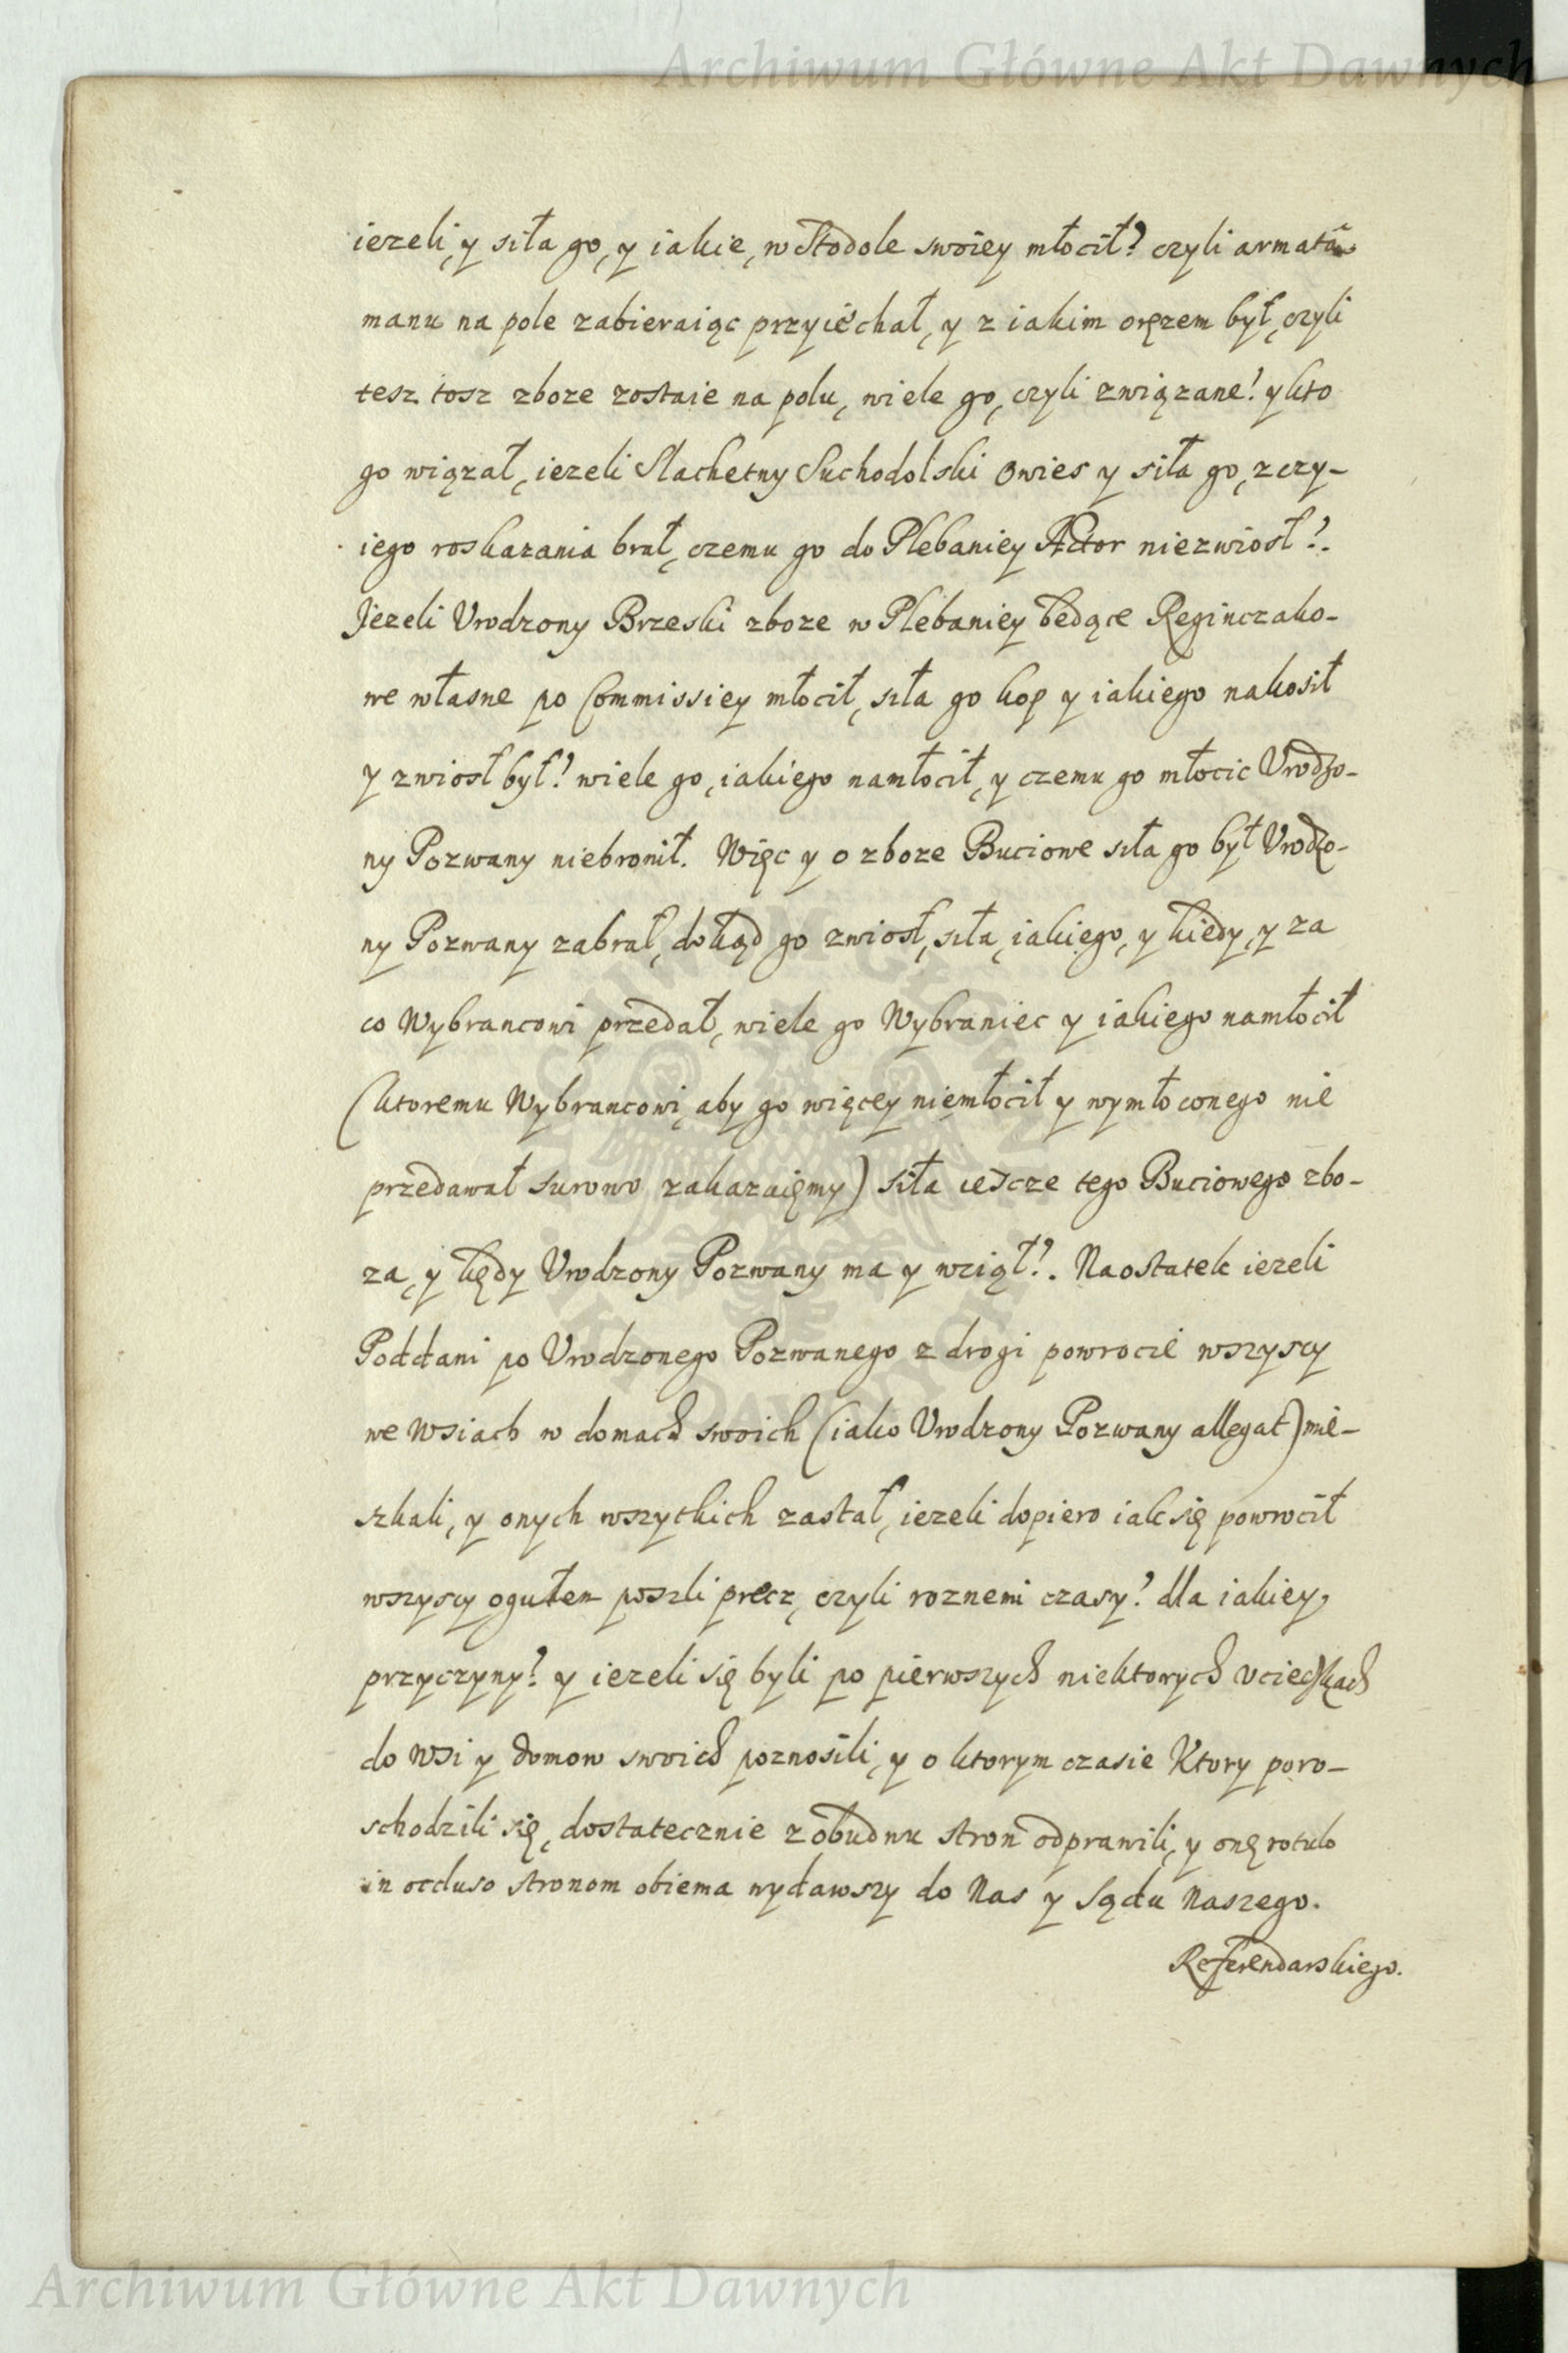 Archiwum Główne Akt Dawnych
iezeli, y siła go, y iakie, w Stodole swoiey młocił? czyli armatâ
manu na pole zabieraiąc przyiechał, y z iakim oręzem był, czyli
tesz tosz zboze zostaie na polu, wiele go, czyli związane? y kto
go wiązał, iezeli Slachetny Suchodolski Owies y siła go, z czy-
iego roskazania brał, czemu go do Plebaniey Actor niezwiosł?.
Jezeli Vrodzony Brzeski zboze w Plebaniey będące Reginczako-
we własne po Commissiey młocił, siła go kop y iakiego nakosił
y zwiosł był? wiele go, iakiego namłocił, y czemu go młocic Vrodzo-
ny Pozwany niebronił. Więc y o zboze Buciowe siła go był Vrodzo-
ny Pozwany zabrał, dokąd go zwiosł, siła, iakiego, y kiedy, y za
co Wybrancowi przedał, wiele go Wybraniec y iakiego namłocił
(ktoremu Wybrancowi, aby go więcey niemłocił y wymłoconego nie
przedawał surowo zakazuięmy) siła iescze tego Buciowego zbo-
za, y kędy Vrodzony Pozwany ma y wziął?. Naostatek iezeli
Poddani po Vrodzonego Pozwanego z drogi powrocie wszyscy
we Wsiach w domach swoich (iako Vrodzony Pozwany allegat) mie-
szkali, y onych wszytkich zastał, iezeli dopiero iak się powrocił
wszyscy ogułem poszli precz, czyli roznemi czasy? dla iakiey,
przyczyny? y iezeli się byli po pierwszych niektorych vcieczkach
do Wsi y domow swoich poznosili, y o ktorym czasie Ktory poro-
schodzili się, dostatecznie z obudwu stron odprawili, y onę rotulo
in occluso stronom obiema wydawszy do Nas y Sądu Naszego.
Referendarskiego.
Archiwum Główne Akt Dawnych